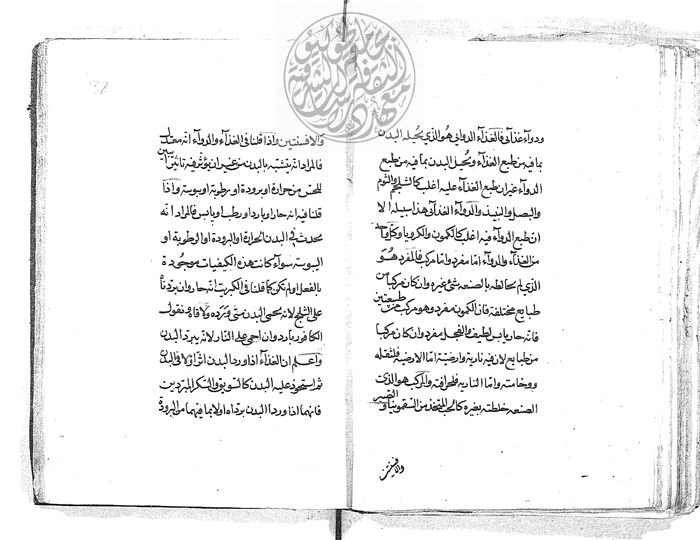 ودواء غذائي فالغذاء الدوائي هو الذي يحيله البدن
بما فيه من طبع الغذاء ويحيل البدن بما فيه من طبع
الدواء غير ان طبع الغذاء عليه اغلب كالشلجم والثوم
والبصل والنبيذ والدواء الغذائي هذا سبيله الا
ان طبع الدواء فيه اغلب كالكمون والكرويا وكل واحد
من الغذاء والدواء اما مفرد واما مركب فالمفرد هو
الذي لم يخالطه بالصنعه شئ غيره وان كان مركبا من
طبايع مختلفة فان الكمون مفرد وهو مركب من طبيعتين
فانه حار يابس لطيف والفجل مفرد وان كان مركبا
من طبايع لان فيه نارية وارضية اما الارضية فلثقله
ووخامته واما النارية فلحرافته والمركب هو الذي
الصنعه خلطته بغيره كالحب المتخذ من السقمونيا و الصبر
والافسنتين
والافسنتين واذا قلنا في الغذاء والدواء انه معتدل
فالمراد انه يتشبه بالبدن من غير ان يؤثر فيه تاثيرا يبين
للحس من حرارة او برودة او رطوبة او يبوسة واذا
قلنا فيه انه حار او بارد او رطب او يابس فالمراد انه
يحدث في البدن الحرارة او البرودة او الرطوبة او
اليبوسة سواء كانت هذه الكيفيات موجودة
بالفعل او لم تكن كما قلنا في الكبريت انه حار وان بردناه
على الثلج لانه يحمى البدن متى ورده ولاقاه ونقول
الكافور بارد وان احمى على النار لانه يبرد البدن
واعلم ان الغذاء اذا ورد البدن اثر اولا في البدن
ثم استحوذ عليه البدن كالسويق والسكر المبردين
فانهما اذا وردا البدن برداه اولا بما فيهما من البرودة